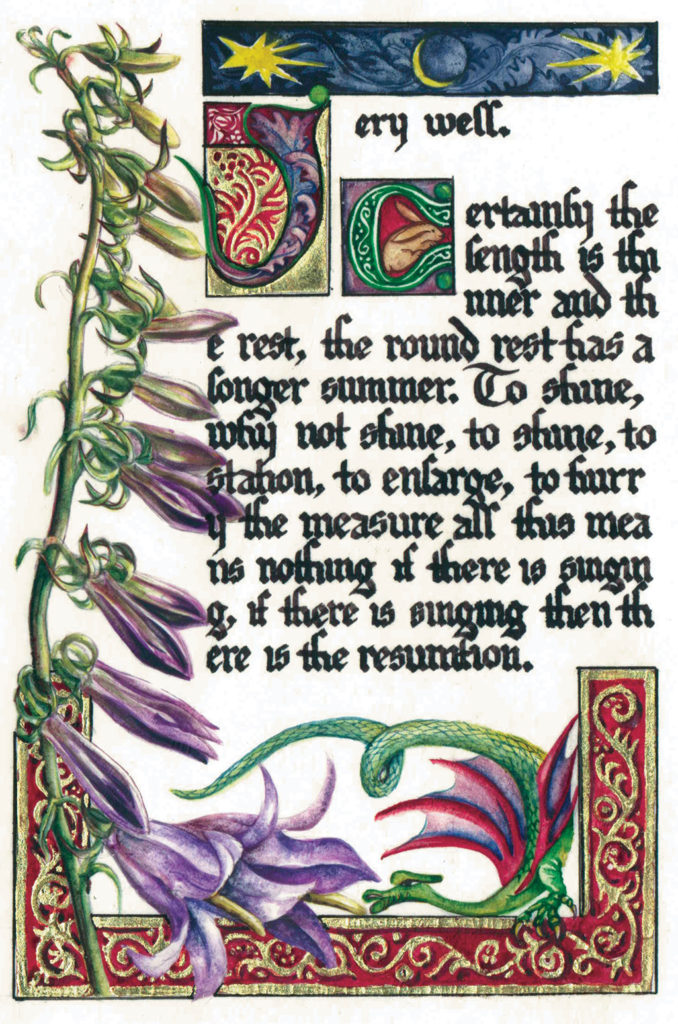 Very well.
Certainly the
length is thi
nner and th
e rest, the round rest has a
longer summer. To shine,
why not shine, to shine, to
station, to enlarge, to hurr
y the measure all this mea
ns nothing if there is singin
g, if there is singing then th
ere is the resumtion.